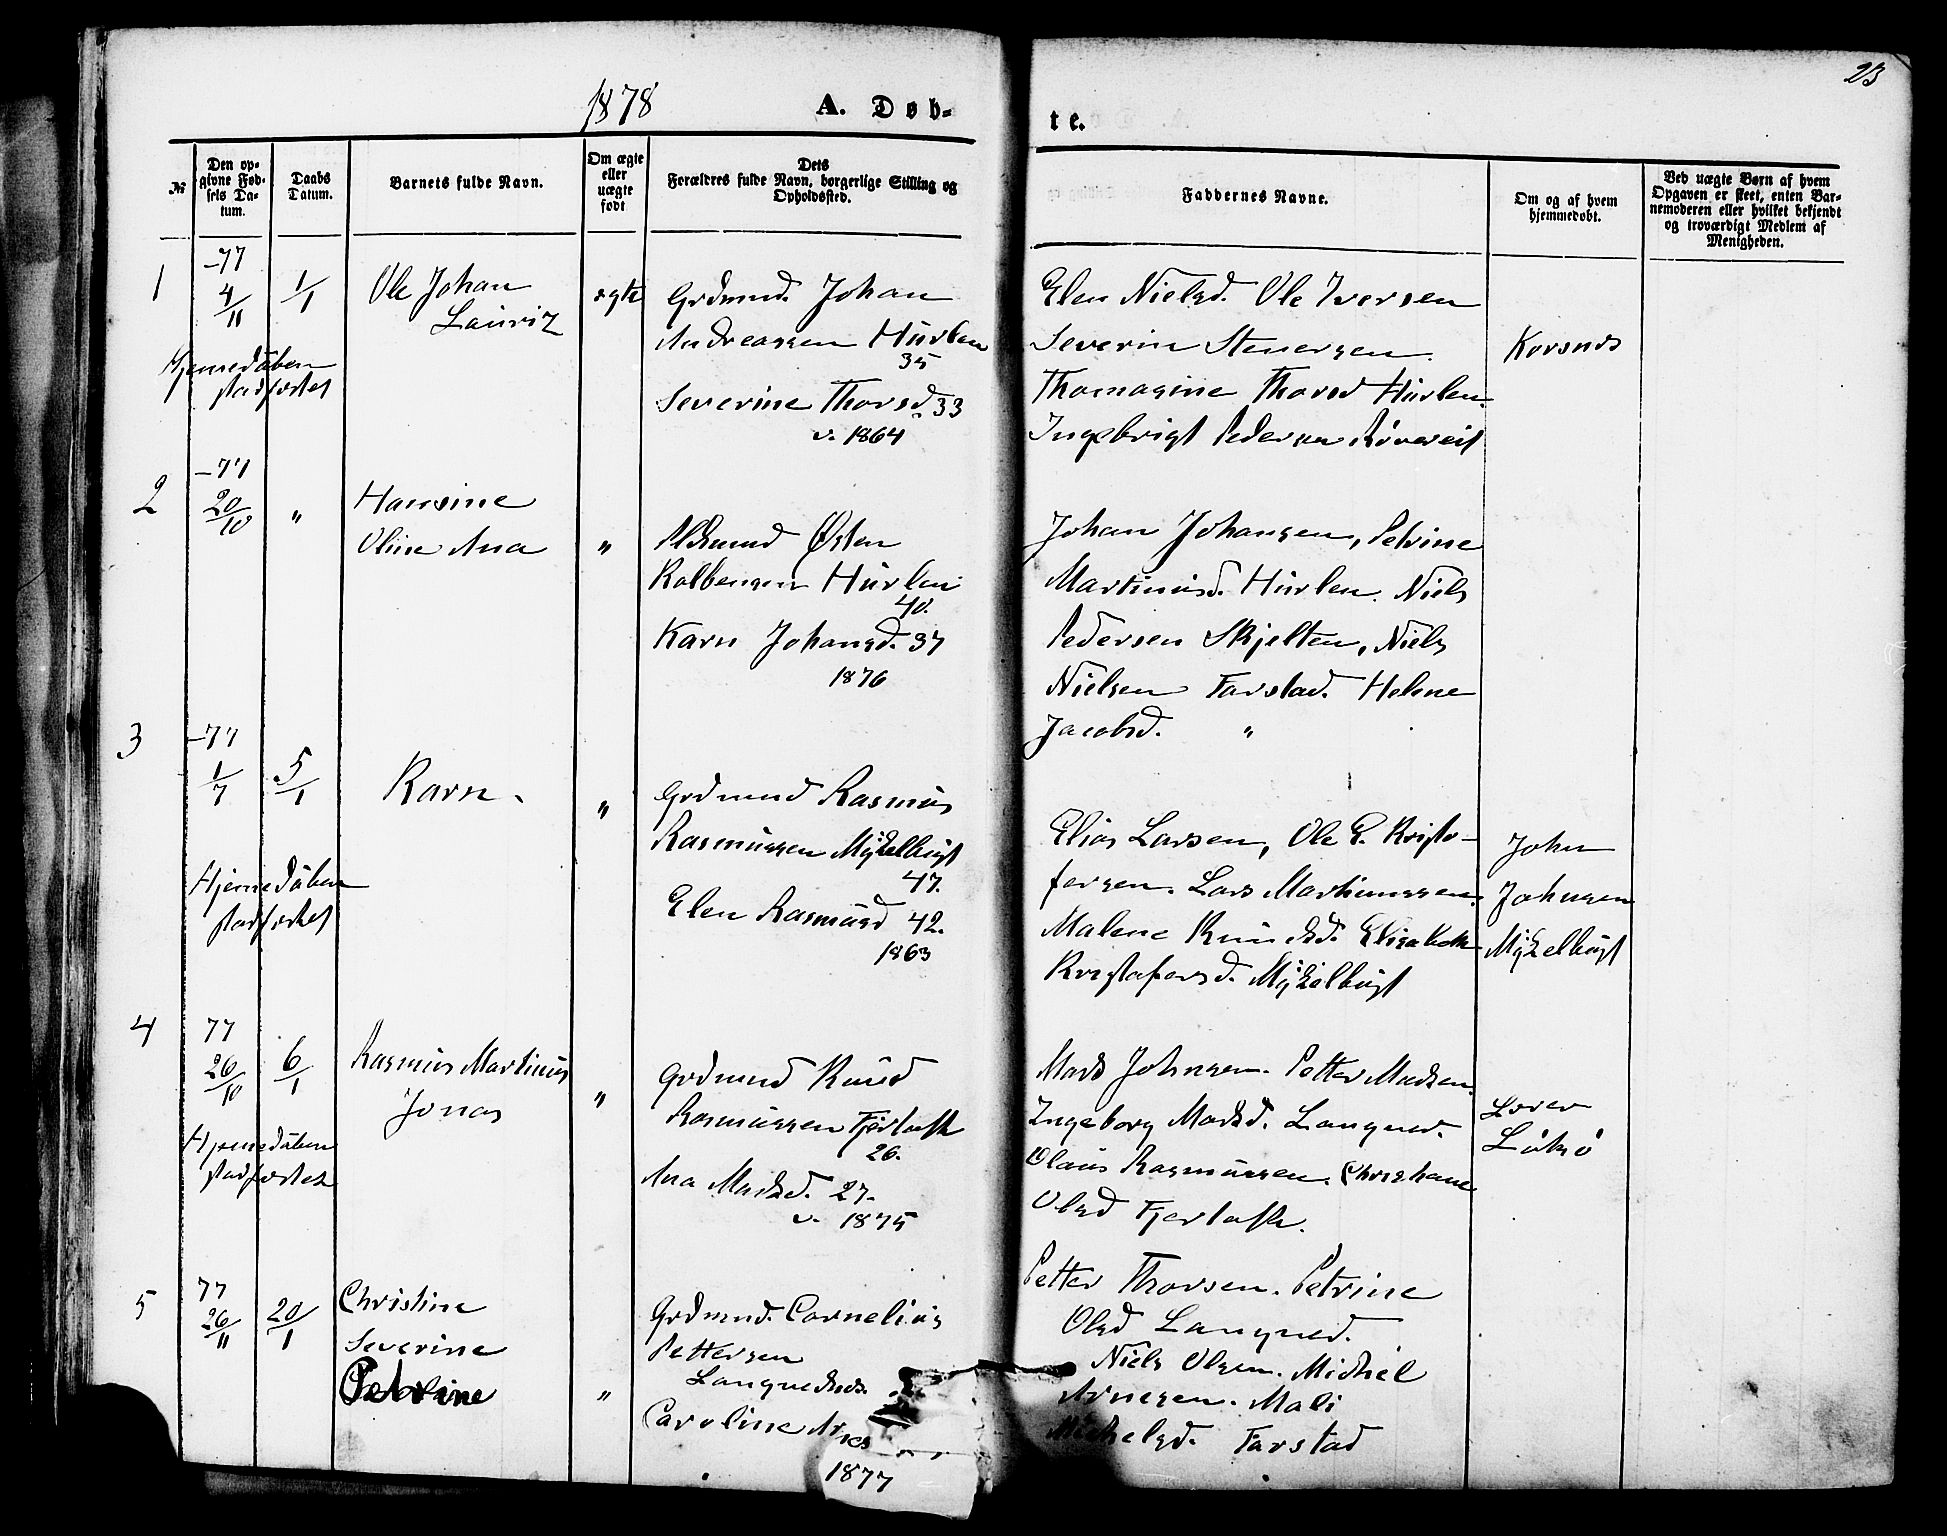 1878
A. Døb-
te.
23
№
Den op-
givne Fød-
sels Da-
tum.
Daabs
Datum.
Barnets fulde Navn.
Om ægte
eller
uægte
født
Dets
Forældres fulde Navn, borgerlige Stilling og
Opholdssted.
Faddernes Navne.
Om og af hvem
hjemmedøbt.
Ved uægte Børn af hvem
Opgaven er skeet, enten Bar-
nemoderen eller hvilket bekjendt
og troværdigt Medlem af
Menigheden.
1
-77
4/11
1/1
Ole Johan
Lauritz
ægte
Grdmnd. Johan
Andreassen Hurlen
35
Severine Thorsd 33
v. 1864
Hjemedåben
stadfæstet
Elen Nielsd. Ole Iversen
Severin Stenersen
Thomasine Thorsd Hurlen
Ingebrigt Pedersen
Korsnes
2
-77
20/10
"
Hansine
Oline Ana
"
Østen
Kolbensen Hurlen
40.
Karn Johansd. 37
1876
Johan Johansen, Petrine
Martinusd. Hurlen. Niels
Pedersen Skjelten, Niels
Nielsen Farstad. Helene
Jacobsd. "
3
-77
1/7
5/1
Karn
"
Grdmnd Rasmus
Rasmussen Myklebust
47.
Elen Rasmusd 42.
1863
Hjemedåben
stadfæstet
Elias Larsen, Ole E. Kristo-
fersen. Lars Martinussen
Malene Knudsd. Elisabeth
Kristofersd. Myklebust
John
Johnsen
Myklebust
4
77
26/10
6/1
Rasmus Martinus
Jonas
"
Grdmnd Knud
Rasmussen Fjertoft
26.
Ana Madsd. 27.
v. 1875
Hjemedåben
stadfæstet
Mads Johnsen. Petter Madsen
Ingeborg Madsd. Longved.
Olaus Rasmussen. Christiane
Olsd Fjertoft.
Lærer
Løksø
5
77
26/11
20/1
Christine
Severine
Petrine
"
Grdmnd. Cornelius
Pettersen
Caroline
1877
Petter Thorsen. Petrine
Olsd Longved.
Niels Olsen. Michel
Arnesen. Mali
Michelsd. Farstad